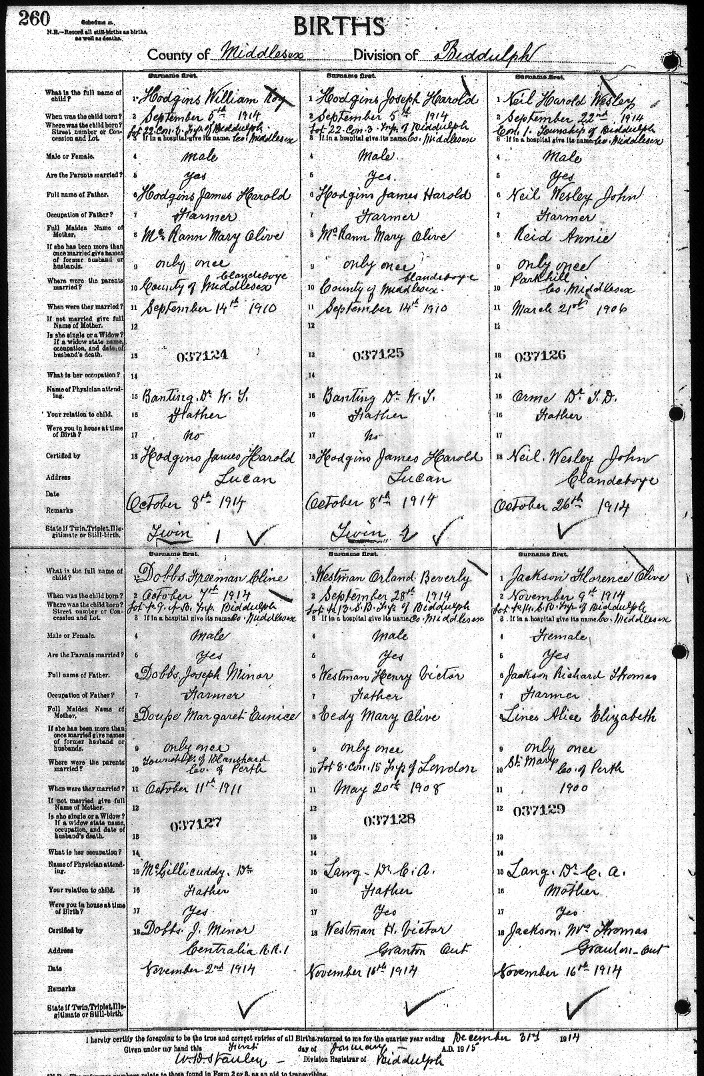 260
Schedule A.
N.B.—Record all still-births as births, as well as deaths.
BIRTHS
County of Middlesex Division of Biddulph
Surname first. Surname first. Surname first.
What is the full name of child? 1 Hodgins William Roy 1 Hodgins Joseph Harold 1 Neil Harold Wesley
When was the child born? 2 September 5th 1914 2 September 5th 1914 2 September 22nd 1914
Where was the child born? Lot 22 Con. 3. Twp of Biddulph Lot 22 Con. 3. Twp. of Biddulph Con. 1. Township of Biddulph
Street number or Concession and Lot. 3 If in a hospital give its name. Co. Middlesex 3 If in a hospital give its name. Co. Middlesex 3 If in a hospital give its name. Co. Middlesex
Male or Female. 4 Male 4 Male. 4 Male
Are the Parents married? 5 Yes 5 Yes. 5 Yes
Full name of Father. 6 Hodgins James Harold 6 Hodgins James Harold 6 Neil Wesley John
Occupation of Father? 7 Farmer 7 Farmer 7 Farmer
Full Maiden Name of Mother. 8 McRann Mary Olive 8 McRann Mary Olive 8 Reid Annie
If she has been more than once married give names of former husband or husbands. 9 only once 9 only once 9 only once
Where were the parents married? Clandeboye Clandeboye Parkhill
10 County of Middlesex 10 County of Middlesex. 10 Co. Middlesex
When were they married? 11 September 14th 1910 11 September 14th 1910 11 March 21st 1906
If not married give full Name of Mother. 12 12 12
Is she single or a Widow? If a widow state name, occupation, and date of husband's death. 13 037124 13 037125 13 037126
What is her occupation? 14 14 14
Name of Physician attending. 15 Banting. Dr W. T. 15 Banting Dr W. T. 15 Orme Dr T. D.
Your relation to child. 16 Father 16 Father 16 Father
Were you in house at time of Birth? 17 no 17 No 17
Certified by 18 Hodgins James Harold 18 Hodgins James Harold 18 Neil. Wesley John
Address Lucan Lucan Clandeboye
Date October 8th 1914 October 8th 1914 October 26th 1914
Remarks
State if Twin, Triplet, Illegitimate or Still-birth. Twin 1 Twin 2
Surname first. Surname first. Surname first.
What is the full name of child? 1 Dobbs Freeman Cline 1 Westman Orland Beverly 1 Jackson Florence Olive
When was the child born? 2 October 7th 1914 2 September 28th 1914 2 November 9th 1914
Where was the child born? Twp Biddulph Twp of Biddulph Twp. of Biddulph
Street number or Concession and Lot. 3 If in a hospital give its name. Co. Middlesex 3 If in a hospital give its name. Co. Middlesex 3 If in a hospital give its name. Co. Middlesex
Male or Female. 4 Male 4 Male 4 Female
Are the Parents married? 5 Yes 5 Yes 5 Yes
Full name of Father. 6 Dobbs Joseph Minor 6 Westman Henry Victor 6 Jackson Richard Thomas
Occupation of Father? 7 Farmer 7 Father 7 Farmer
Full Maiden Name of Mother. 8 Doupe Margaret Eunice 8 Eedy Mary Olive 8 Lines Alice Elizabeth
If she has been more than once married give names of former husband or husbands. 9 only once 9 only once 9 only once
Where were the parents married? Township of Blanshard St. Marys
10 Co. of Perth 10 Lot 8. Con. 15 Twp of London 10 Co. of Perth
When were they married? 11 October 11th 1911 11 May 20th 1908 11 1900
If not married give full Name of Mother. 12 12 12
Is she single or a Widow? If a widow state name, occupation, and date of husband's death. 13 037127 13 037128 13 037129
What is her occupation? 14 14 14
Name of Physician attending. 15 McGillicuddy. Dr 15 Lang. Dr C. A. 15 Lang. Dr C. A.
Your relation to child. 16 Father 16 Father 16 Mother
Were you in house at time of Birth? 17 Yes 17 Yes 17 Yes
Certified by 18 Dobbs. J. Minor 18 Westman H. Victor 18 Jackson. Mrs Thomas
Address Centralia R.R.1 Granton Ont Granton Ont
Date November 2nd 1914 November 16th 1914 November 16th 1914
Remarks
State if Twin, Triplet, Illegitimate or Still-birth.
I hereby certify the foregoing to be the true and correct entries of all Births returned to me for the quarter year ending December 31st 1914
Given under my hand this First day of January A.D. 1915
W.D. Stanley Division Registrar of Biddulph